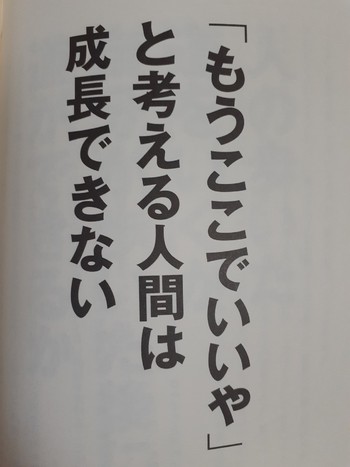 「もうここでいいや」
と考える人間は
成長できない